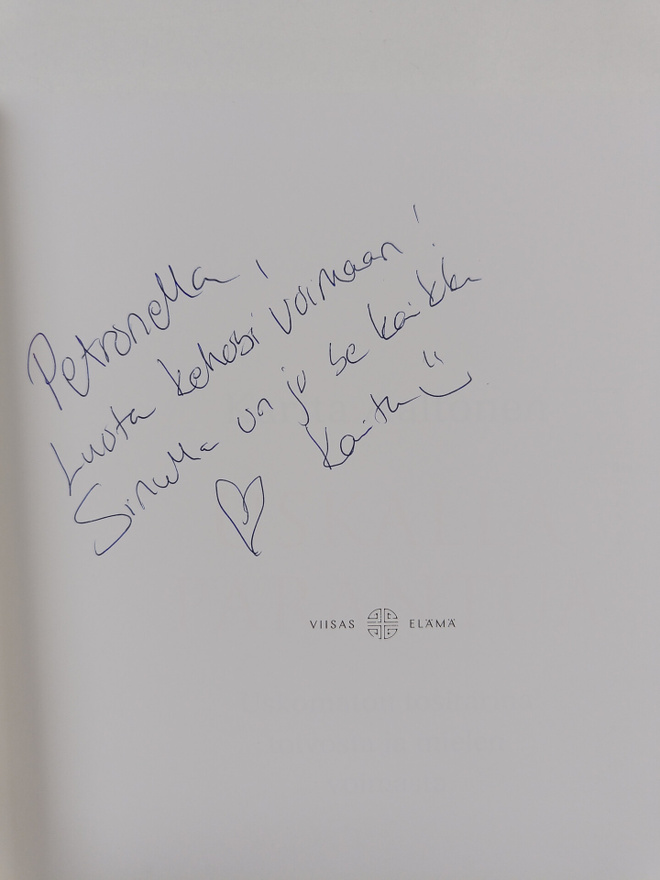 Petronella,
Luota kehosi voimaan!
Sinulla on jo se kaikki
Kaita
VIISAS ELÄMÄ